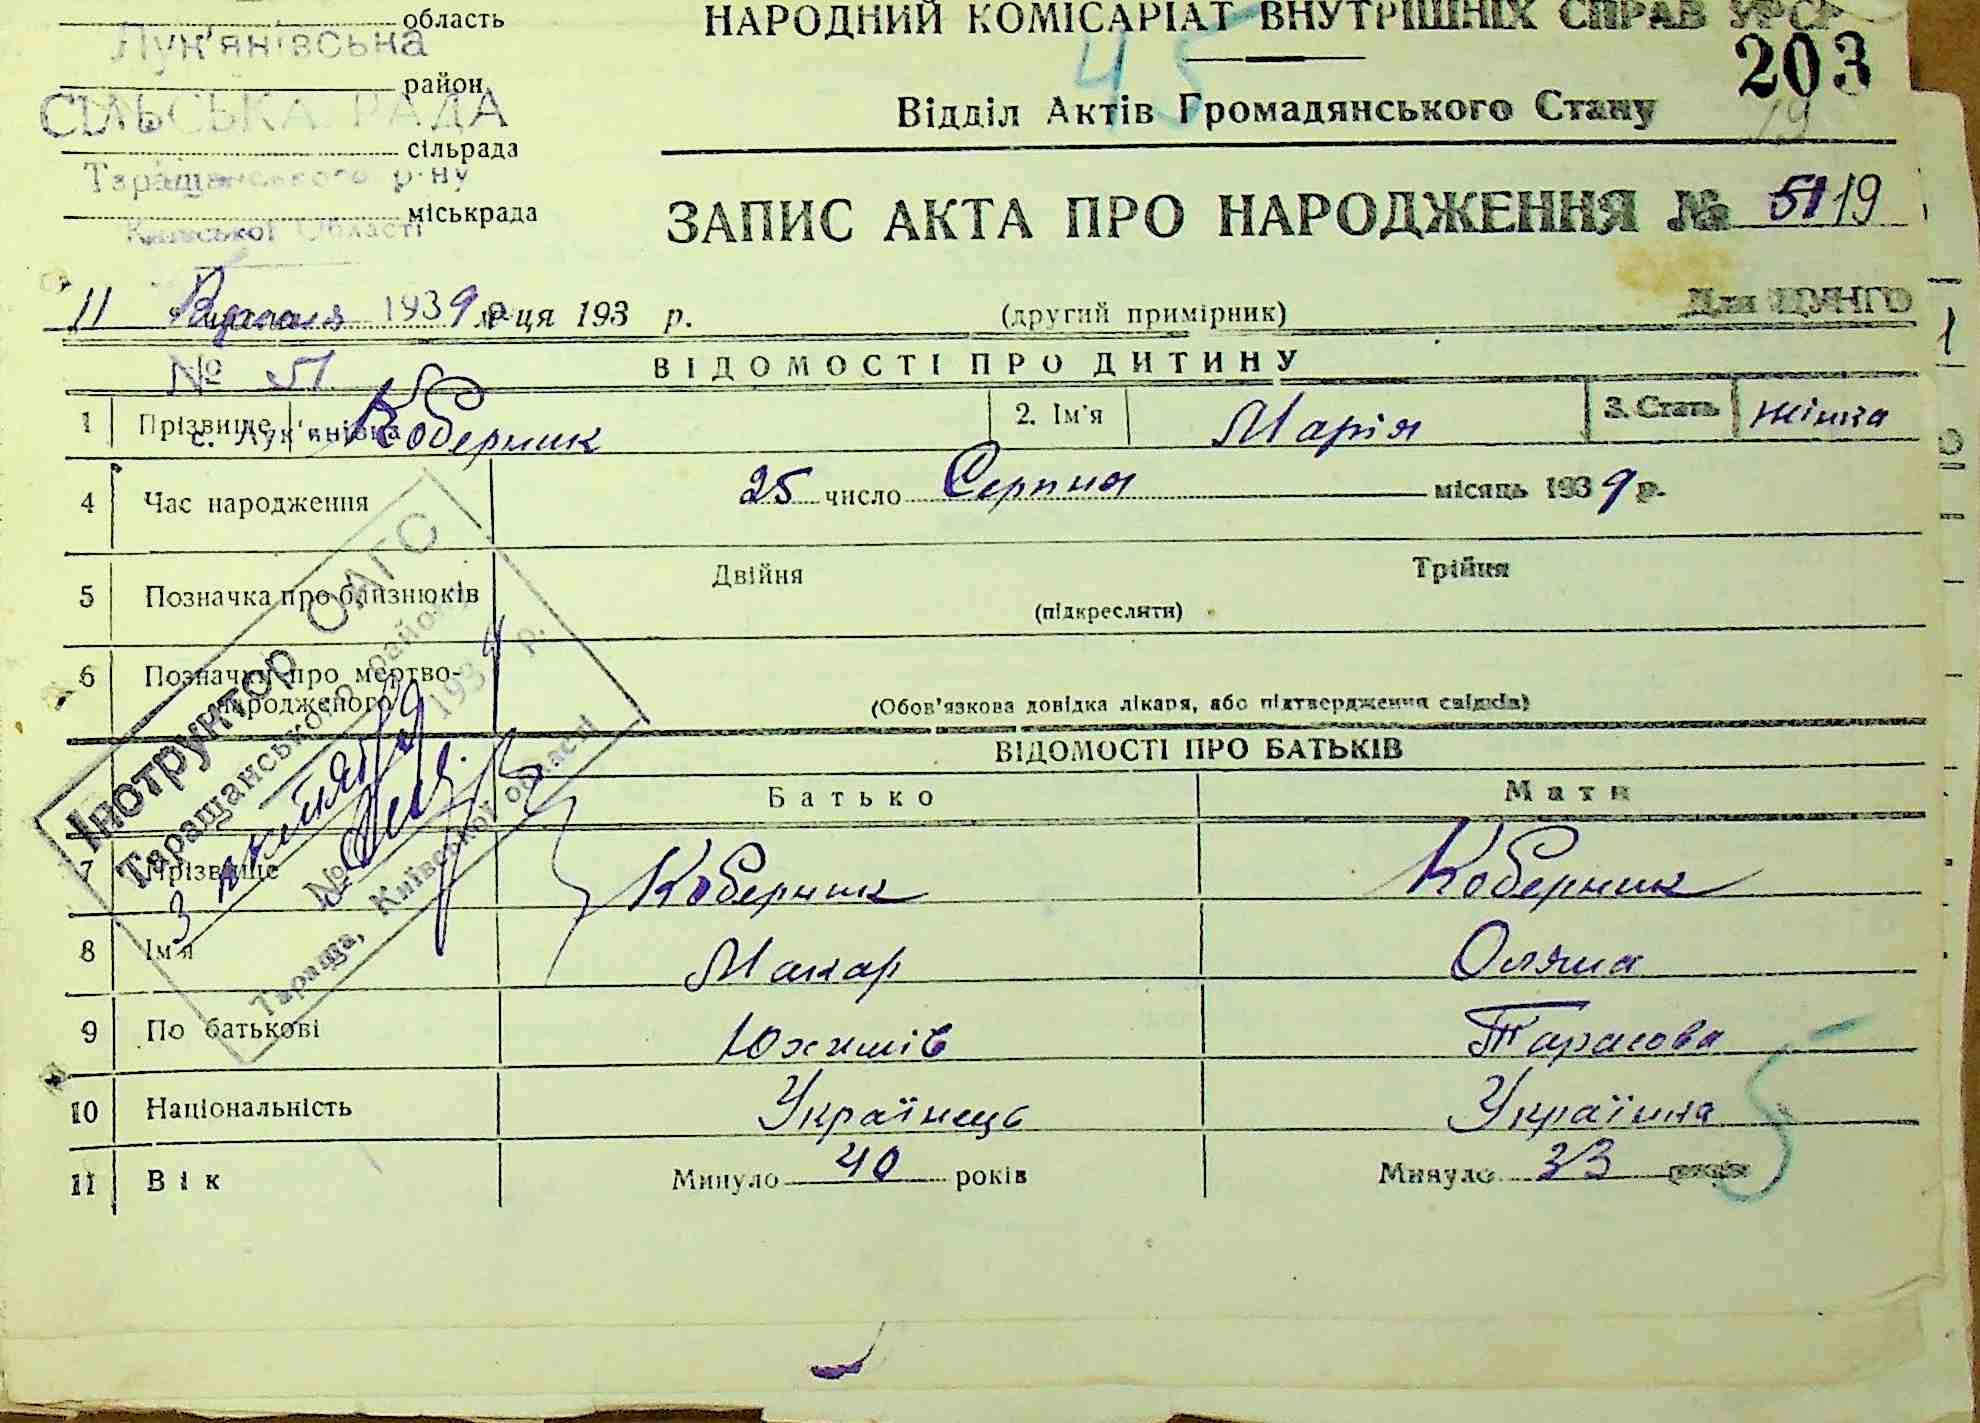 область
НАРОДНИЙ КОМІСАРІАТ ВНУТРІШНІХ СПРАВ УРСР
Лук'янівська
45
203
район
СІЛЬСЬКА РАДА
Відділ Актів Громадянського Стану
19
сільрада
Таращанського р-ну
міськрада
Київської Області
ЗАПИС АКТА ПРО НАРОДЖЕННЯ № 51 19
11 1939 р. м-ця 193 р.
(другий примірник)
Для ЦОАГС
№ 51
ВІДОМОСТІ ПРО ДИТИНУ
1 Прізвище Коберник 2. Ім'я Марія 3. Стать жінка
с. Лук'янівка
4 Час народження 25 число Серпня місяць 1939 р.
5 Позначка про близнюків Двійня Трійня
(підкреслити)
6 Позначки про мертво-
народженого
(Обов'язкова довідка лікаря, або підтвердження свідків)
Інструктор ОАГС
Таращанського району
193 р.
№
Тараща, Київської області
ВІДОМОСТІ ПРО БАТЬКІВ
Батько Мати
7 Прізвище Коберник Коберник
8 Ім'я Макар Оляна
9 По батькові Юхимів Тарасова
10 Національність Українець Українка
5
11 Вік Минуло 40 років Минуло 33 років